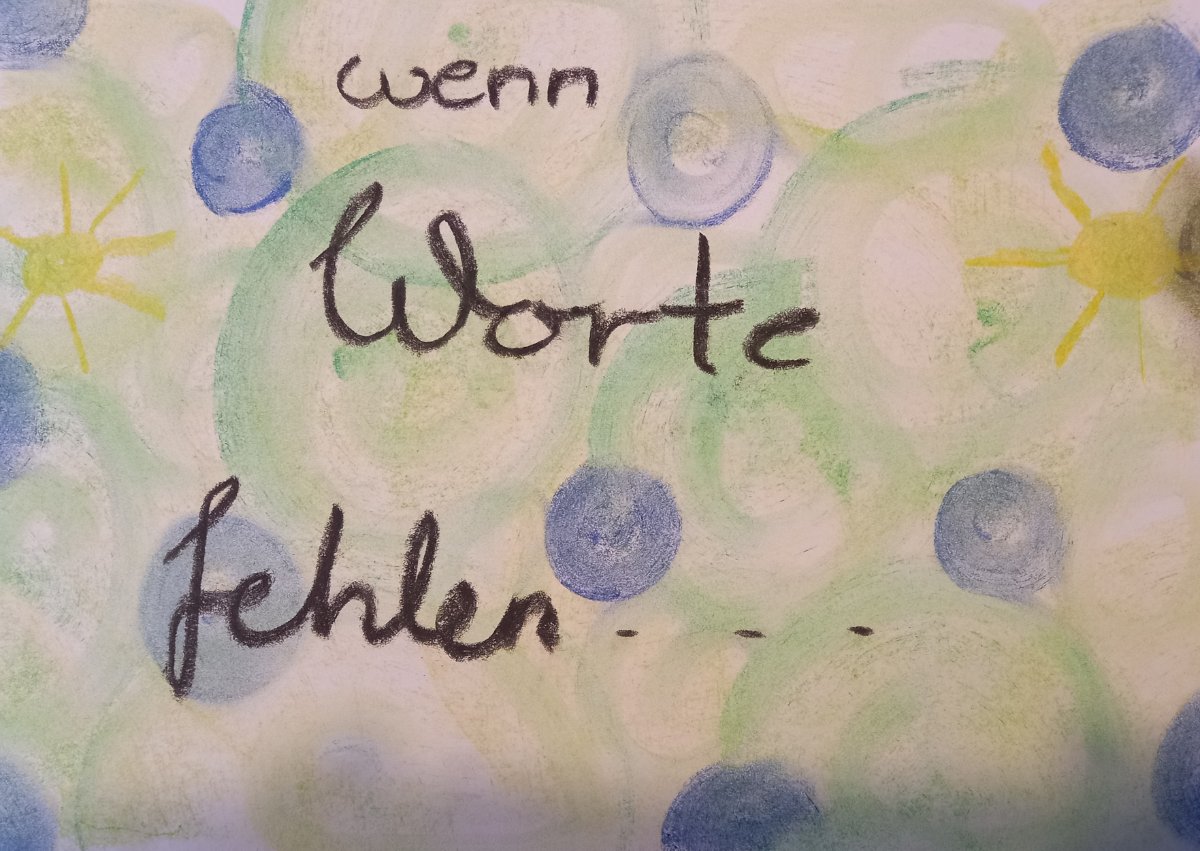 wenn
Worte
fehlen...